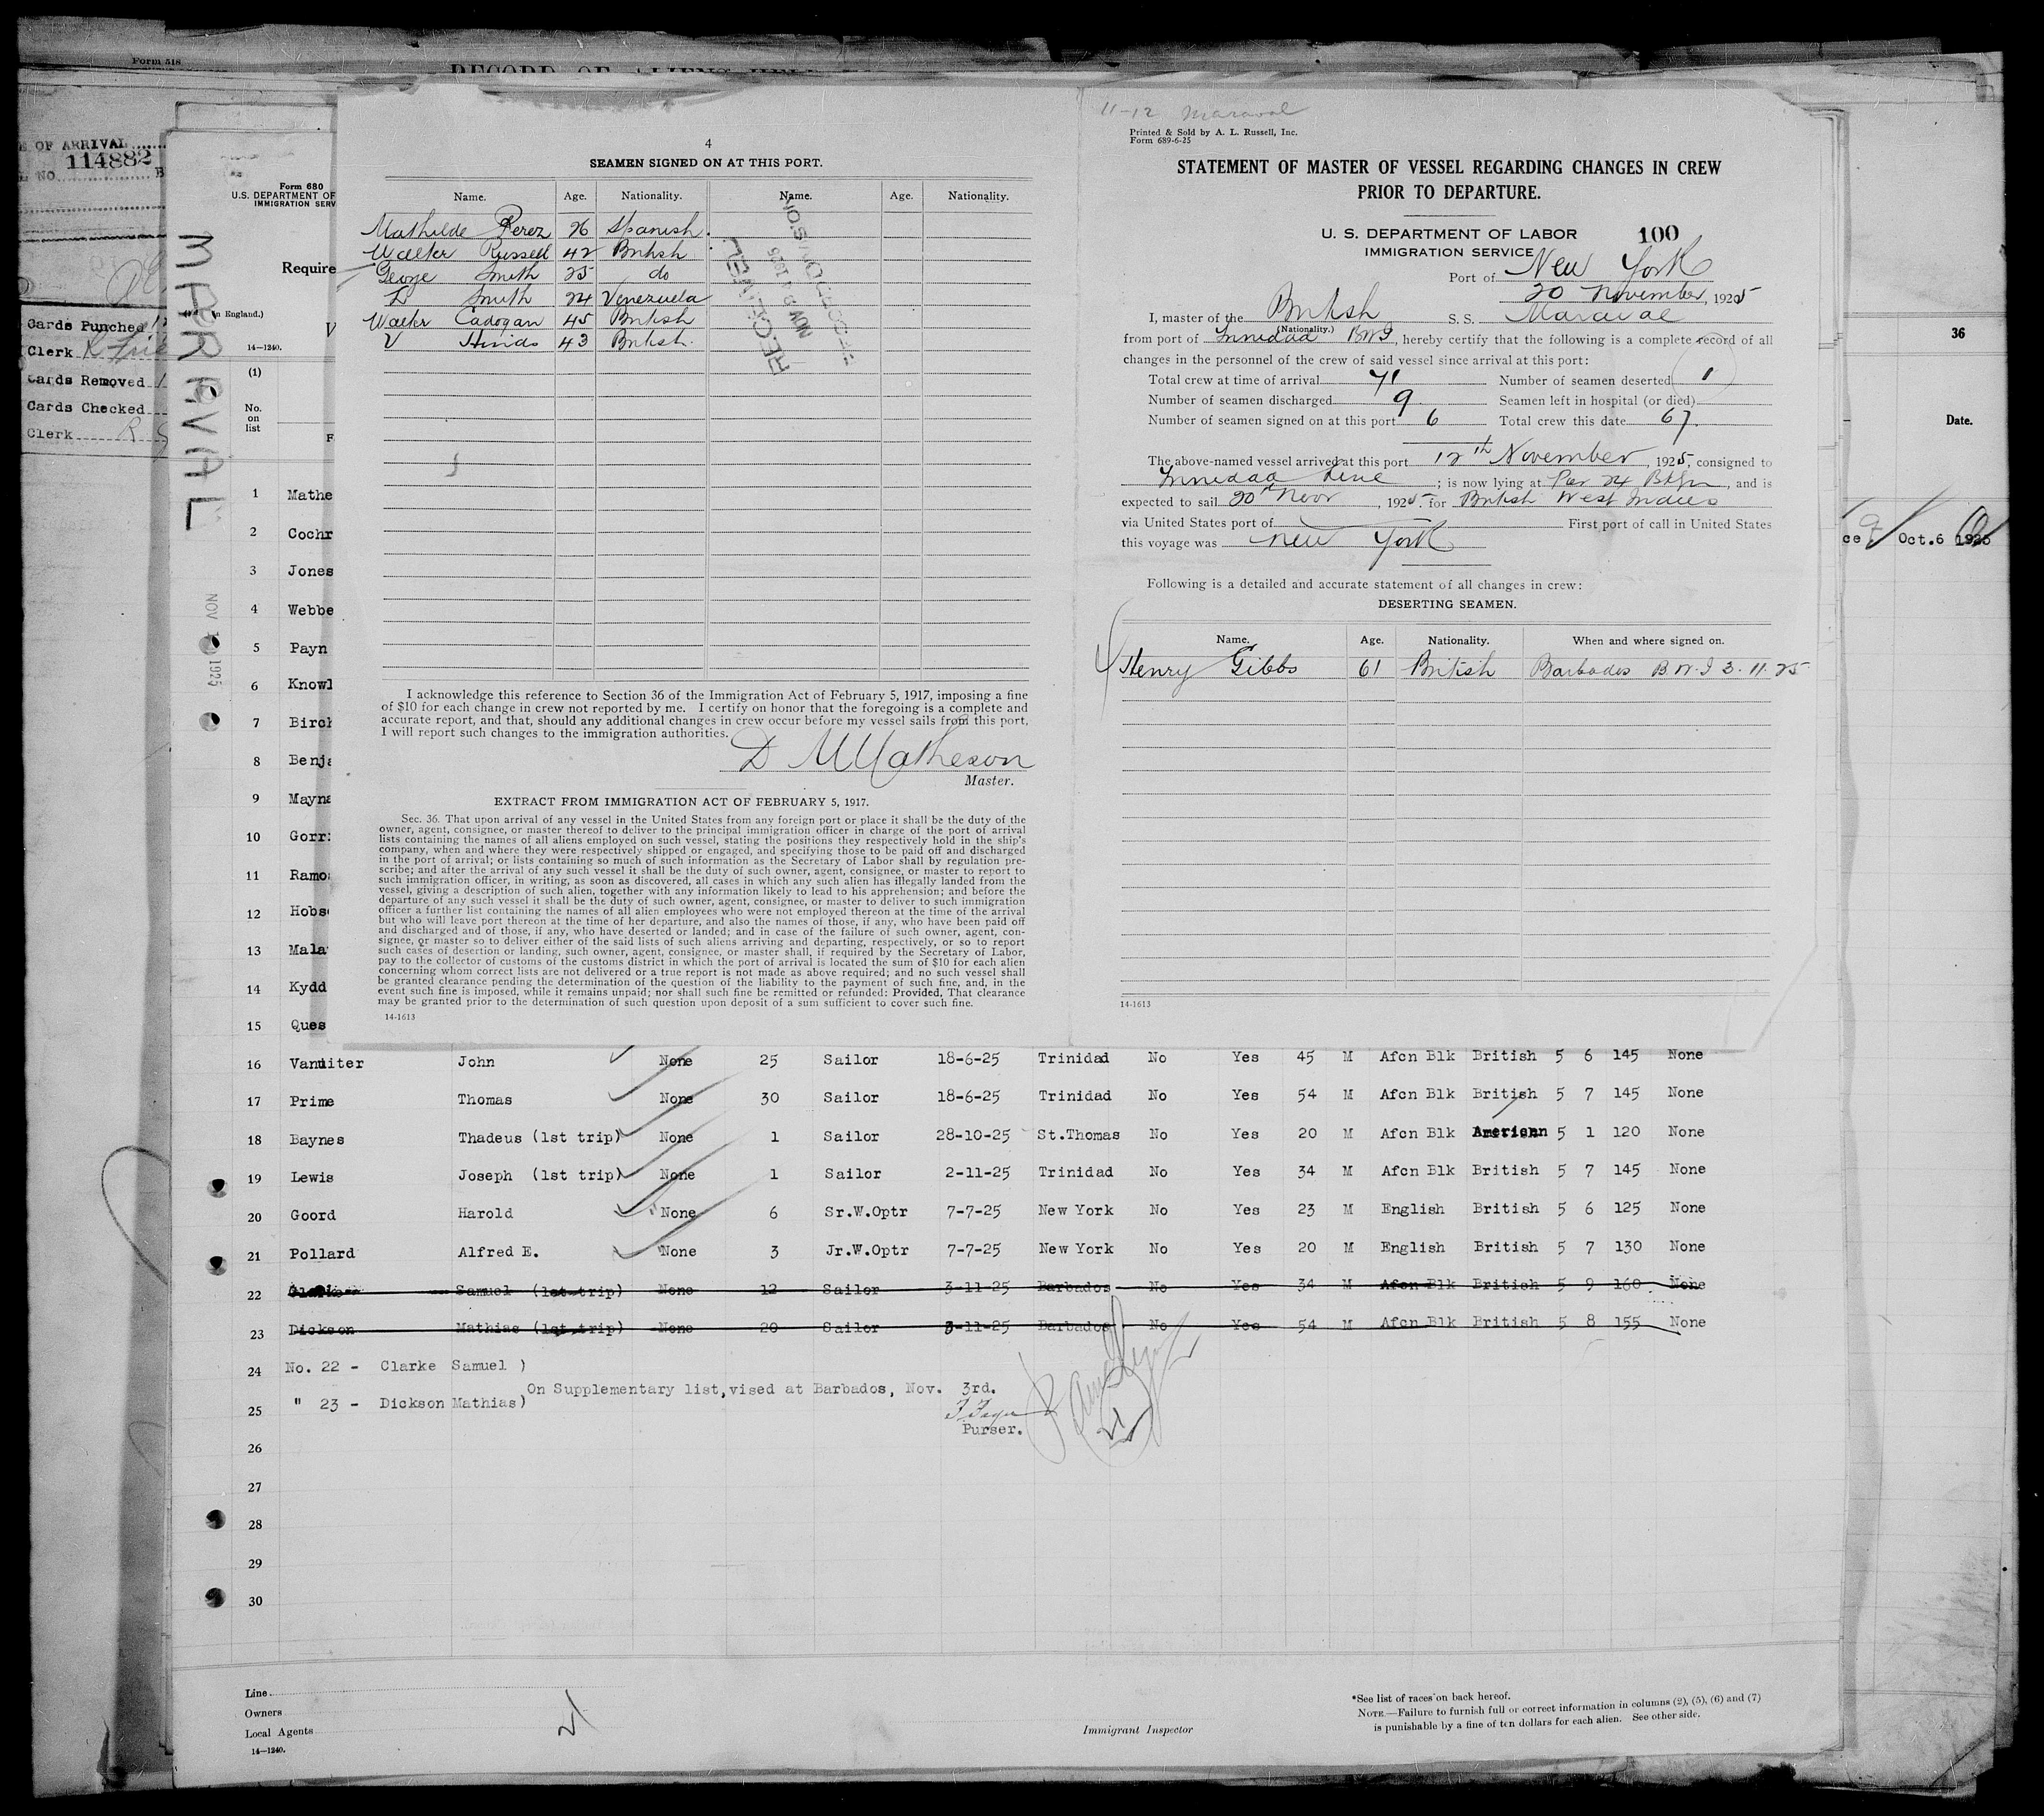 Form 518
RECORD OF ALIENS HELD
OF ARRIVAL
114882
NO. B
Cards Punched
Clerk
Cards Removed
Cards Checked
Clerk
MARAVAL
NOV 1925
Form 680
U.S. DEPARTMENT OF
IMMIGRATION SERV
Require
in England.)
V
14—1240.
(1)
No.
on
list
F
1 Mathe
2 Cochr
3 Jones
4 Webbe
5 Payn
6 Knowl
7 Birch
8 Benja
9 Mayna
10 Gorri
11 Ramo
12 Hobs
13 Mala
14 Kydd
15 Ques
4
SEAMEN SIGNED ON AT THIS PORT.
Name. Age. Nationality. Name. Age. Nationality.
Mathilde Perez 26 Spanish.
Walter Russell 42 British
George Smith 25 do
L Smith 24 Venezuela
Walter Cadogan 45 British
V Hinds 43 British.
RECEIVED
I acknowledge this reference to Section 36 of the Immigration Act of February 5, 1917, imposing a fine
of $10 for each change in crew not reported by me. I certify on honor that the foregoing is a complete and
accurate report, and that, should any additional changes in crew occur before my vessel sails from this port,
I will report such changes to the immigration authorities.
D M Matheson
Master.
EXTRACT FROM IMMIGRATION ACT OF FEBRUARY 5, 1917.
Sec. 36. That upon arrival of any vessel in the United States from any foreign port or place it shall be the duty of the
owner, agent, consignee, or master thereof to deliver to the principal immigration officer in charge of the port of arrival
lists containing the names of all aliens employed on such vessel, stating the positions they respectively hold in the ship's
company, when and where they were respectively shipped or engaged, and specifying those to be paid off and discharged
in the port of arrival; or lists containing so much of such information as the Secretary of Labor shall by regulation pre-
scribe; and after the arrival of any such vessel it shall be the duty of such owner, agent, consignee, or master to report to
such immigration officer, in writing, as soon as discovered, all cases in which any such alien has illegally landed from the
vessel, giving a description of such alien, together with any information likely to lead to his apprehension; and before the
departure of any such vessel it shall be the duty of such owner, agent, consignee, or master to deliver to such immigration
officer a further list containing the names of all alien employees who were not employed thereon at the time of the arrival
but who will leave port thereon at the time of her departure, and also the names of those, if any, who have been paid off
and discharged and of those, if any, who have deserted or landed; and in case of the failure of such owner, agent, con-
signee, or master so to deliver either of the said lists of such aliens arriving and departing, respectively, or so to report
such cases of desertion or landing, such owner, agent, consignee, or master shall, if required by the Secretary of Labor,
pay to the collector of customs of the customs district in which the port of arrival is located the sum of $10 for each alien
concerning whom correct lists are not delivered or a true report is not made as above required; and no such vessel shall
be granted clearance pending the determination of the question of the liability to the payment of such fine, and, in the
event such fine is imposed, while it remains unpaid; nor shall such fine be remitted or refunded: Provided, That clearance
may be granted prior to the determination of such question upon deposit of a sum sufficient to cover such fine.
14-1613
11-12 Maraval
Printed & Sold by A. L. Russell, Inc.
Form 689-6-25
STATEMENT OF MASTER OF VESSEL REGARDING CHANGES IN CREW
PRIOR TO DEPARTURE.
U. S. DEPARTMENT OF LABOR 100
IMMIGRATION SERVICE
Port of New York
20 November, 1925
I, master of the British S. S. Maraval
(Nationality.)
from port of Trinidad BWI, hereby certify that the following is a complete record of all
changes in the personnel of the crew of said vessel since arrival at this port:
Total crew at time of arrival 71 Number of seamen deserted 1
Number of seamen discharged 9 Seamen left in hospital (or died)
Number of seamen signed on at this port 6 Total crew this date 67.
The above-named vessel arrived at this port 12th November, 1925, consigned to
Trinidad Line; is now lying at Pier 24 Bklyn, and is
expected to sail 20th Novr, 1925. for British West Indies
via United States port of First port of call in United States
this voyage was New York
Following is a detailed and accurate statement of all changes in crew:
DESERTING SEAMEN.
Name. Age. Nationality. When and where signed on.
Henry Gibbs 61 British Barbados B.W.I 3.11.25
14-1613
36
Date.
ce Oct.6 1925
16 Vanuiter John None 25 Sailor 18-6-25 Trinidad No Yes 45 M Afcn Blk British 5 6 145 None
17 Prime Thomas None 30 Sailor 18-6-25 Trinidad No Yes 54 M Afcn Blk British 5 7 145 None
18 Baynes Thadeus (1st trip) None 1 Sailor 28-10-25 St.Thomas No Yes 20 M Afcn Blk American 5 1 120 None
19 Lewis Joseph (1st trip) None 1 Sailor 2-11-25 Trinidad No Yes 34 M Afcn Blk British 5 7 145 None
20 Goord Harold None 6 Sr.W.Optr 7-7-25 New York No Yes 23 M English British 5 6 125 None
21 Pollard Alfred E. None 3 Jr.W.Optr 7-7-25 New York No Yes 20 M English British 5 7 130 None
22 Clarke Samuel (1st trip) None 12 Sailor 3-11-25 Barbados No Yes 34 M Afcn Blk British 5 9 160 None
23 Dickson Mathias (1st trip) None 20 Sailor 3-11-25 Barbados No Yes 54 M Afcn Blk British 5 8 155 None
24 No. 22 - Clarke Samuel )
On Supplementary list,vised at Barbados, Nov. 3rd.
25 " 23 - Dickson Mathias)
Purser.
26
27
28
29
30
Line
Owners
Local Agents
14—1240.
Immigrant Inspector
*See list of races on back hereof.
NOTE.—Failure to furnish full or correct information in columns (2), (5), (6) and (7)
is punishable by a fine of ten dollars for each alien. See other side.